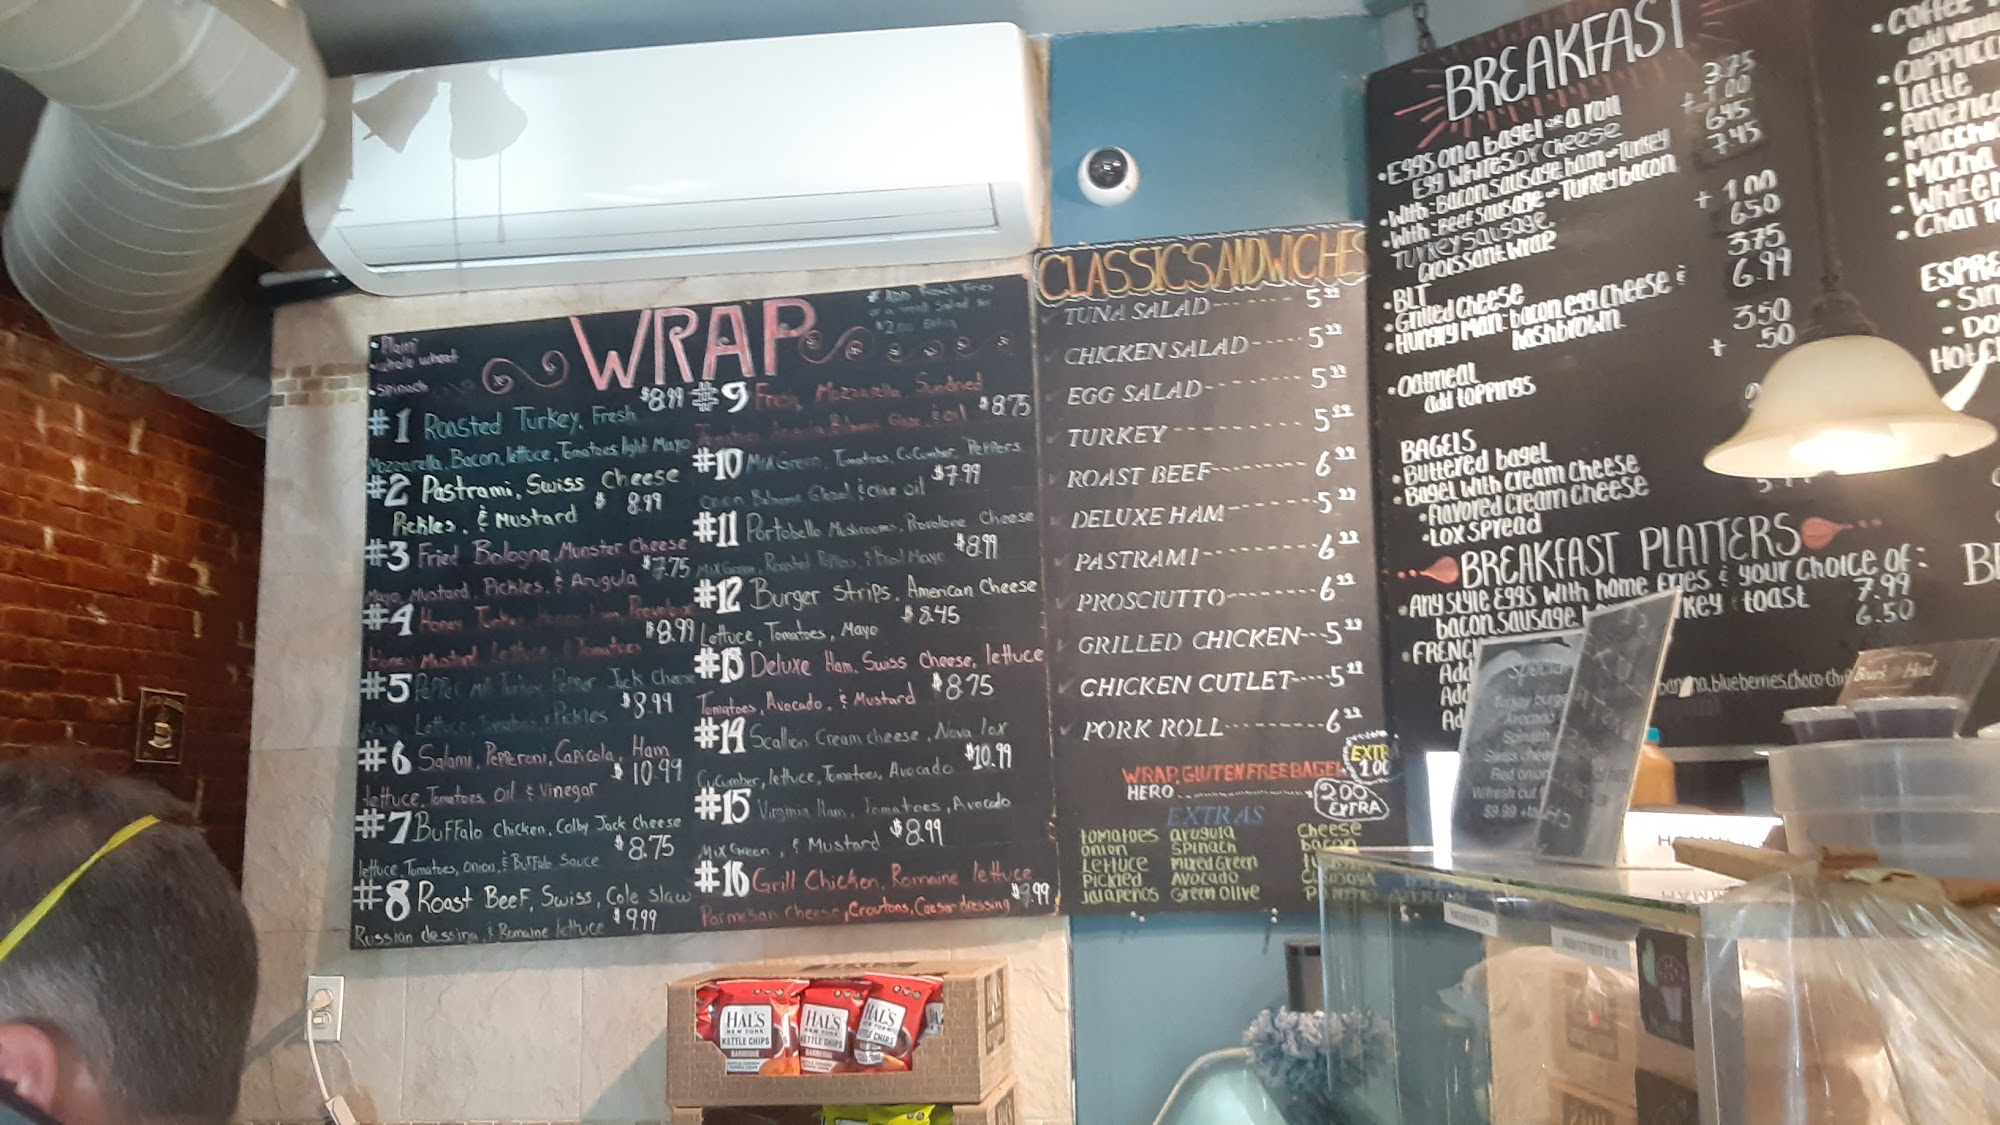 • Plain
• whole wheat
• Spinach
WRAP
* ADD French Fries
or a small Salad for
$2.00 Extra
#1 Roasted Turkey, Fresh $8.99
Mozzarella, Bacon, lettuce, Tomatoes, light Mayo
#2 Pastrami, Swiss Cheese
Pickles, & Mustard $8.99
#3 Fried Bologna, Munster Cheese
Mayo, Mustard, Pickles, & Arugula $7.75
#4 Honey Turkey, Ham, Provolone
Honey Mustard, lettuce, & Tomatoes $8.99
#5 Pepper Mill Turkey, Pepper Jack Cheese
Mayo, Lettuce, Tomatoes, & Pickles $8.99
#6 Salami, Pepperoni, Capicola, Ham
lettuce, Tomatoes, Oil & Vinegar $10.99
#7 Buffalo Chicken, Colby Jack Cheese
lettuce, Tomatoes, onion, & Buffalo sauce $8.75
#8 Roast Beef, Swiss, Cole slaw
Russian dessing, & Romaine lettuce $9.99
#9 Fresh Mozzarella, Sundried
Tomatoes, & oil $8.75
#10 Mix Green, Tomatoes, Cucumber, Peppers
Onion & Olive oil $7.99
#11 Portobello Mushrooms, Provolone Cheese
Mix Green, Roasted Peppers, & Basil Mayo $8.99
#12 Burger Strips, American Cheese
Lettuce, Tomatoes, Mayo $8.45
#13 Deluxe Ham, Swiss Cheese, lettuce
Tomatoes, Avocado, & Mustard $8.75
#14 Scallion Cream cheese, Nova lox
Cucumber, lettuce, Tomatoes, Avocado $10.99
#15 Virginia Ham, Tomatoes, Avocado
Mix Green, & Mustard $8.99
#16 Grill Chicken, Romaine lettuce
Parmesan Cheese, Croutons, Caesar dressing $9.99
CLASSIC SANDWICHES
TUNA SALAD -------- 5.99
CHICKEN SALAD ----- 5.99
EGG SALAD -------- 5.99
TURKEY ---------- 5.99
ROAST BEEF ------- 6.99
DELUXE HAM ------ 5.99
PASTRAMI -------- 6.99
PROSCIUTTO ------ 6.99
GRILLED CHICKEN --- 5.99
CHICKEN CUTLET ---- 5.99
PORK ROLL -------- 6.99
WRAP, GLUTEN FREE BAGEL EXTRA 1.00
HERO.................. 2.00 EXTRA
EXTRAS
tomatoes arugula Cheese
onion Spinach bacon
Lettuce mixed Green
pickled Avocado
Jalapeños Green Olive
BREAKFAST
• Eggs on a bagel or a roll 3.75
Egg Whites or Cheese + 1.00
• With: Bacon, Sausage, ham or Turkey 6.45
• With: Beef Sausage or Turkey bacon 7.45
Turkey Sausage
Croissant Wrap + 1.00
• BLT 6.50
• Grilled Cheese 3.75
• Hungry Man: bacon, egg, Cheese & 6.99
hashbrown
• Oatmeal 3.50
add toppings + .50
BAGELS
• Buttered bagel
• Bagel with Cream Cheese
• Flavored Cream Cheese
• Lox Spread
BREAKFAST PLATTERS
• Any Style Eggs with home fries & your choice of:
bacon, Sausage, toast 7.99
6.50
Add
Add
Ad
banana, blueberries, choco chip
Coffee
Cappucc
• Latte
• America
• Macchia
• Mocha
• White
• Chai T
ESPRE
• Sin
• Do
Special
Turkey burge
Avocado
Spinach
Swiss chee
Red onion
W/fresh cut f
$9.99 +ta
HAL'S
NEW YORK
KETTLE CHIPS
BARBEQUE
HAL'S
NEW YORK
KETTLE CHIPS
HAL'S
KETTLE CHIPS